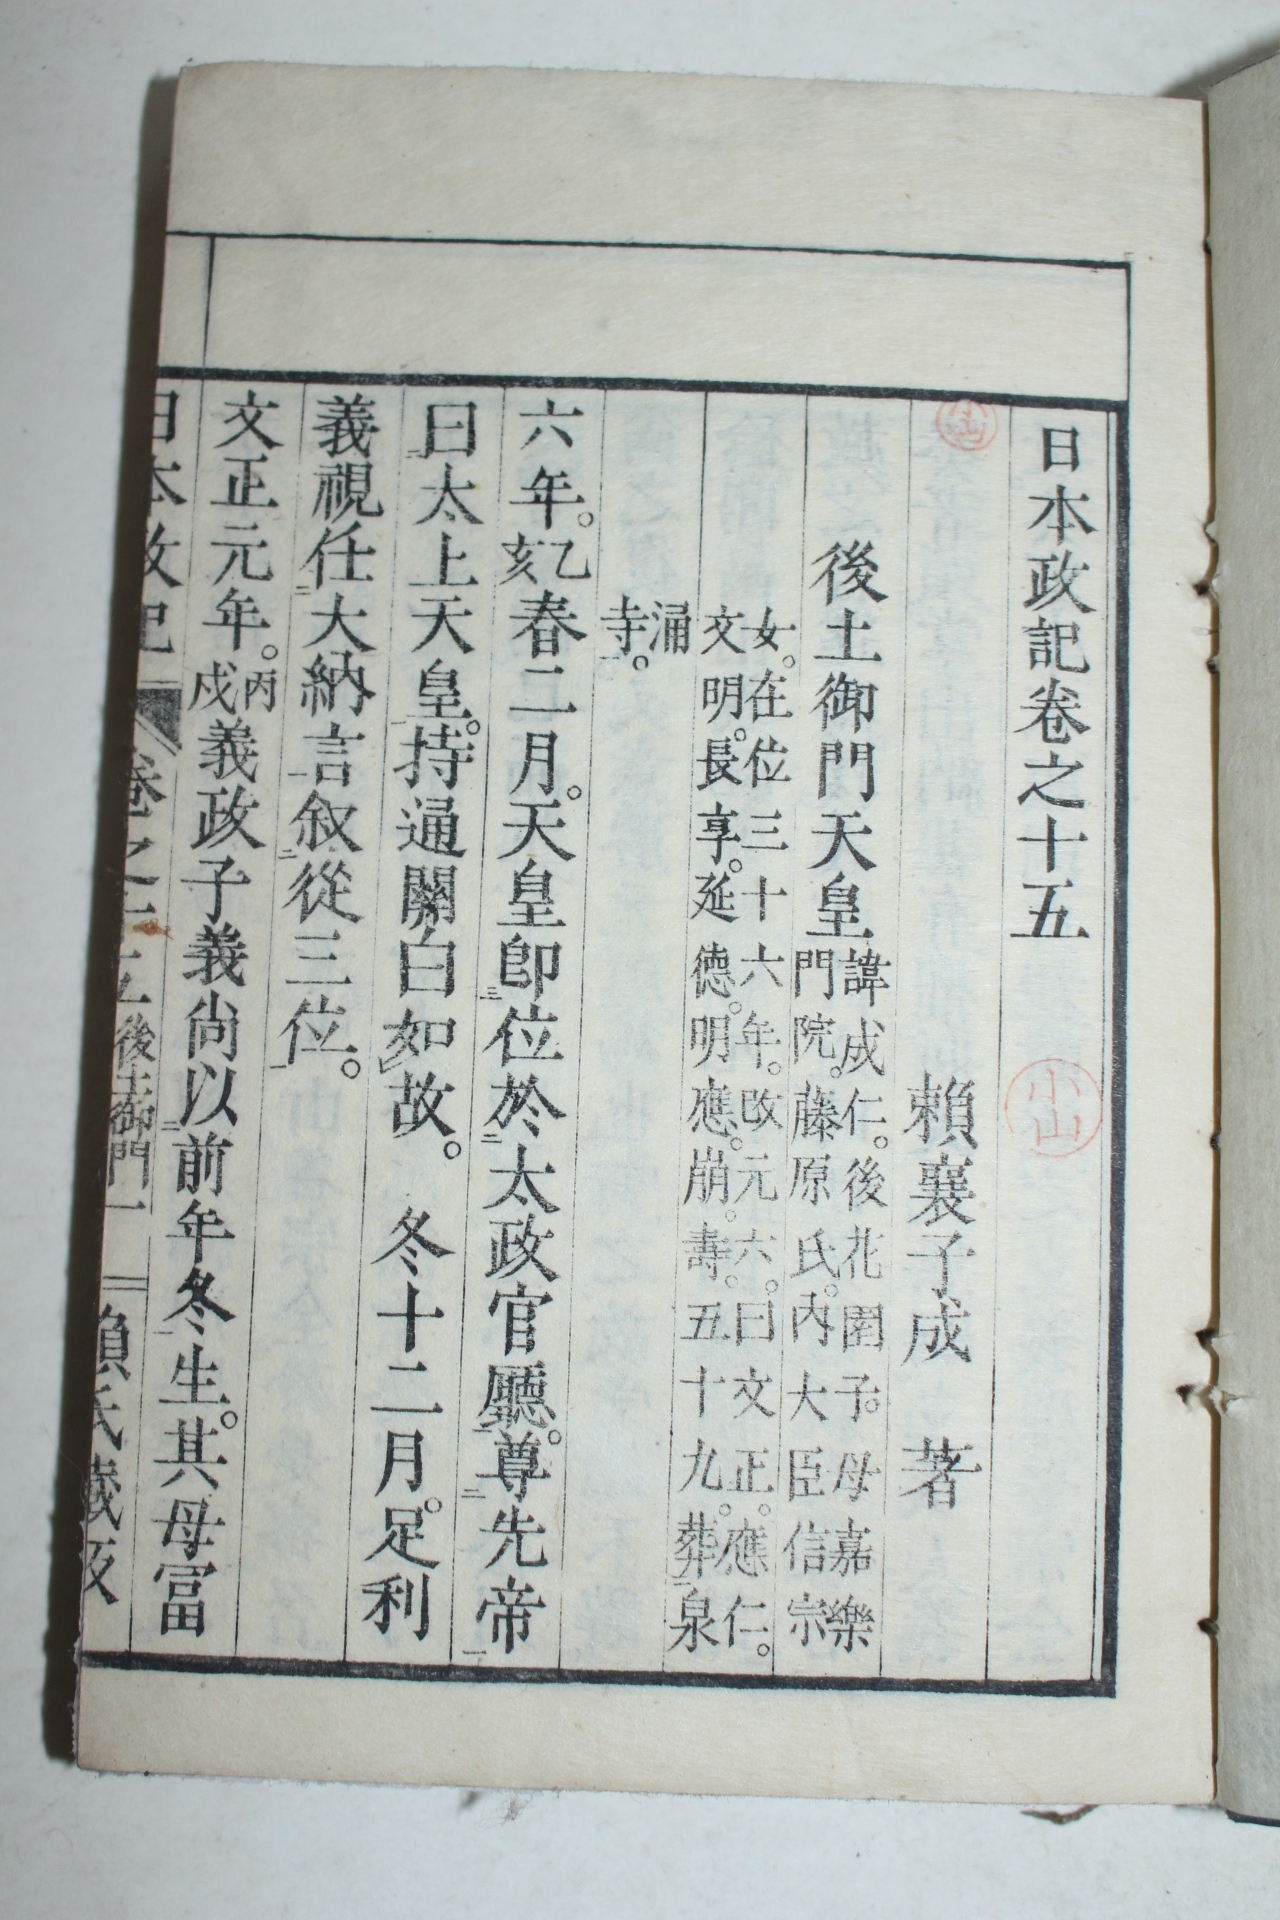 日本政記卷之十五
小山
賴襄子成 著
後土御門天皇
諱成仁。後花園子。母嘉樂
門院。藤原氏。內大臣信宗
女。在位三十六年。改元六。曰文正。應仁。
文明。長享。延德。明應。崩。壽。五十九。葬泉
涌
寺。
六年。乙亥春二月。天皇卽位於太政官廳。尊先帝
曰太上天皇。持通關白如故。 冬十二月。足利
義視任大納言叙從三位。
文正元年。丙戌義政子義尙以前年冬生。其母冨
日本政記 卷之十五 後土御門 一 賴氏藏版